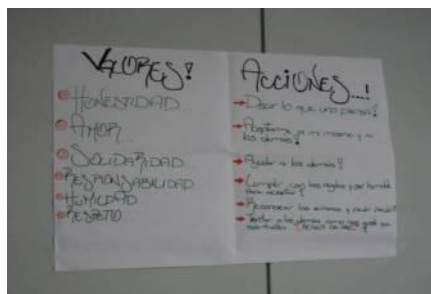 VALORES!
HONESTIDAD
AMOR
SOLIDARIDAD
RESPONSABILIDAD
HUMILDAD
RESPETO
ACCIONES...!
Decir lo que uno piensa!
Aceptarme yo mismo y a
los demás!
Ayudar a los demás!
Cumplir con las reglas y ser
para
Reconocer los errores y pedir
a los demás como